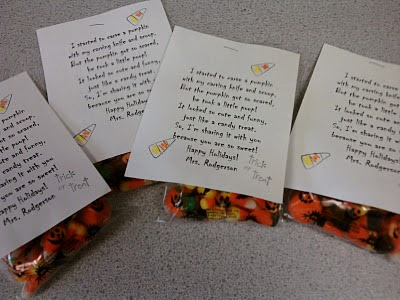 I started to carve a pumpkin
with my carving knife and scoop,
But the pumpkin got so scared,
he took a little poop!
It looked so cute and funny,
just like a candy treat.
So, I'm sharing it with
because you are so
Happy Holidays!
Mrs. Rodgerson
I started to carve a pumpkin
with my carving knife and scoop,
But the pumpkin got so scared,
he took a little poop!
It looked so cute and funny,
just like a candy treat.
So, I'm sharing it with you
because you are so sweet!
Happy Holidays!
Mrs. Rodgerson
Trick
or Treat
I started to carve a pumpkin
with my carving knife and scoop,
But the pumpkin got so scared,
he took a little poop!
It looked so cute and funny,
just like a candy treat.
So, I'm sharing it with you
because you are so sweet!
Happy Holidays!
Mrs. Rodgerson
carve a pumpkin
knife and scoop,
got so scared,
little poop!
and funny,
candy treat.
sharing it with you
you are so sweet!
Happy Holidays!
Mrs. Rodgerson
Trick
or Treat